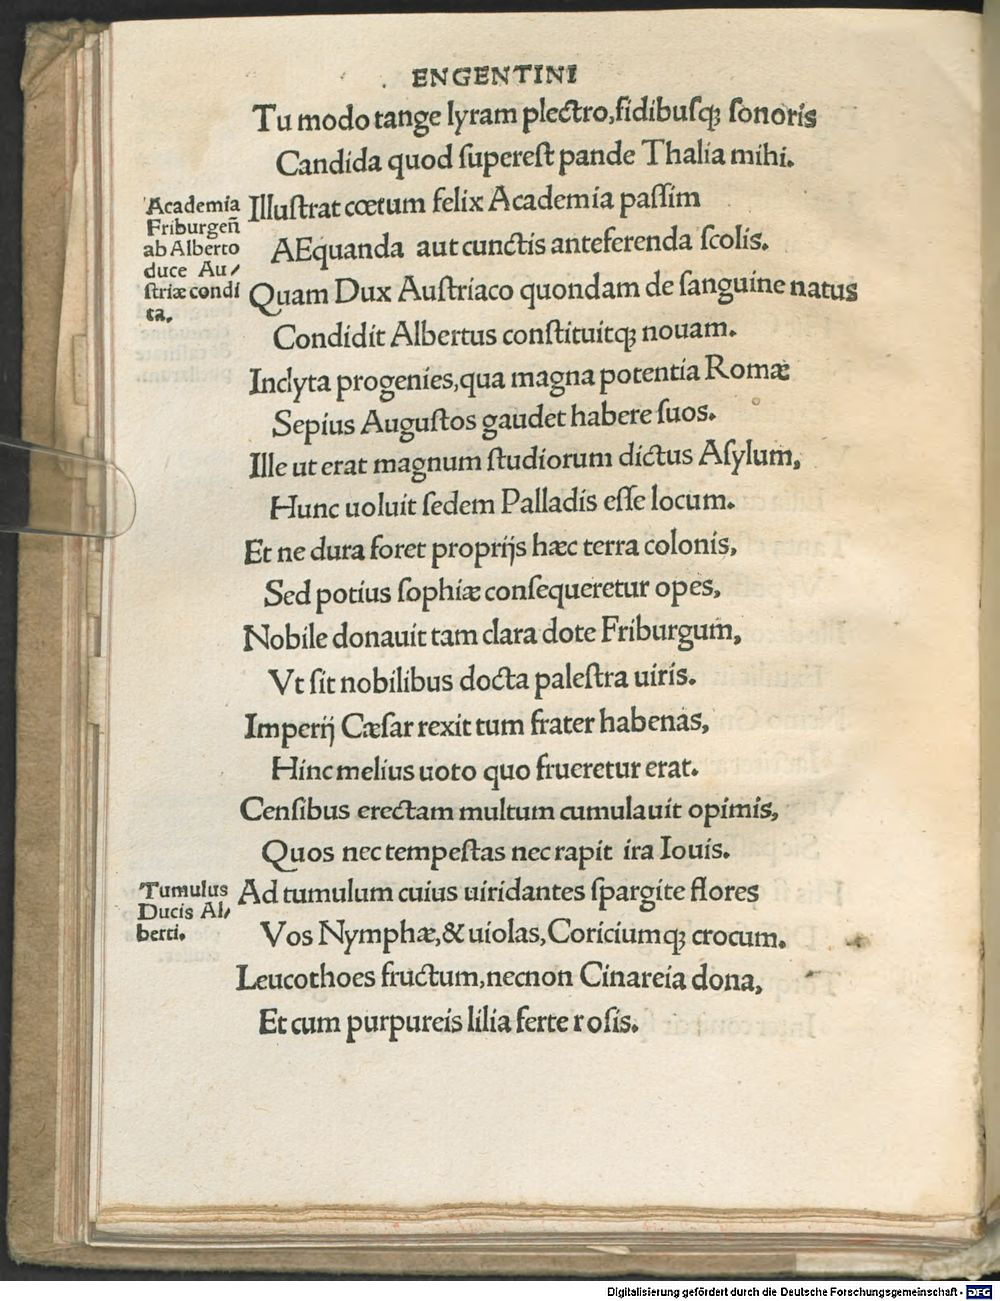 ENGENTINI
Tu modo tange lyram plectro,fidibuſqꝫ ſonoris
Candida quod ſupereſt pande Thalia mihi.
Academia
Friburgen̄
ab Alberto
duce Au⸗
ſtriæ condi
ta.
Illuſtrat cœtum felix Academia paſſim
AEquanda aut cunctis anteferenda ſcolis.
Quam Dux Auſtriaco quondam de ſanguine natus
Condidit Albertus conſtituitqꝫ nouam.
Inclyta progenies,qua magna potentia Romæ
Sepius Auguſtos gaudet habere ſuos.
Ille ut erat magnum ſtudiorum dictus Aſylum,
Hunc uoluit ſedem Palladis eſſe locum.
Et ne dura foret proprijs hæc terra colonis,
Sed potius ſophiæ conſequeretur opes,
Nobile donauit tam clara dote Friburgum,
Vt ſit nobilibus docta paleſtra uiris.
Imperij Cæſar rexit tum frater habenas,
Hinc melius uoto quo frueretur erat.
Cenſibus erectam multum cumulauit opimis,
Quos nec tempeſtas nec rapit ira Iouis.
Tumulus
Ducis Al⸗
berti.
Ad tumulum cuius uiridantes ſpargite flores
Vos Nymphæ,& uiolas,Coriciumqꝫ crocum.
Leucothoes fructum,necnon Cinareia dona,
Et cum purpureis lilia ferte roſis.
Digitalisierung gefördert durch die Deutsche Forschungsgemeinschaft - DFG